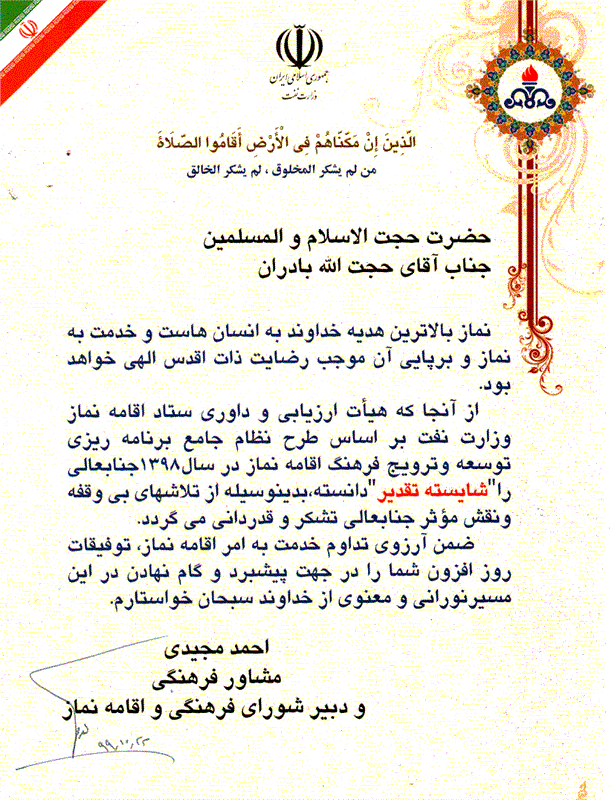 جمهوری اسلامی ایران
وزارت نفت
الَّذِینَ إِنْ مَکَّنَّاهُمْ فِی الْأَرْضِ أَقَامُوا الصَّلَاةَ
من لم یشکر المخلوق ، لم یشکر الخالق
حضرت حجت الاسلام و المسلمین
جناب آقای حجت الله بادران
نماز بالاترین هدیه خداوند به انسان هاست و خدمت به
نماز و برپایی آن موجب رضایت ذات اقدس الهی خواهد
بود.
از آنجا که هیأت ارزیابی و داوری ستاد اقامه نماز
وزارت نفت بر اساس طرح نظام جامع برنامه ریزی
توسعه وترویج فرهنگ اقامه نماز در سال۱۳۹۸جنابعالی
را"شایسته تقدیر"دانسته،بدینوسیله از تلاشهای بی وقفه
ونقش مؤثر جنابعالی تشکر و قدردانی می گردد.
ضمن آرزوی تداوم خدمت به امر اقامه نماز، توفیقات
روز افزون شما را در جهت پیشبرد و گام نهادن در این
مسیرنورانی و معنوی از خداوند سبحان خواستارم.
احمد مجیدی
مشاور فرهنگی
و دبیر شورای فرهنگی و اقامه نماز
۹۹,۱۰,۲۳